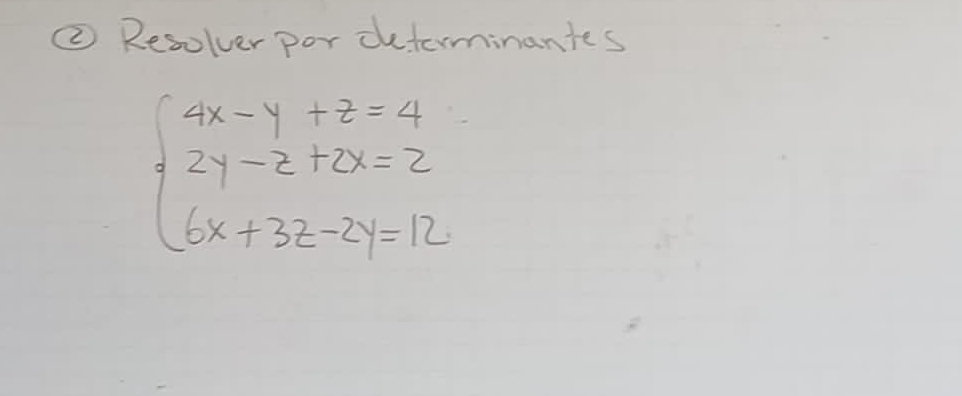 ② Resolver por determinantes
4x - y + z = 4
2y - z + 2x = 2
6x + 3z - 2y = 12